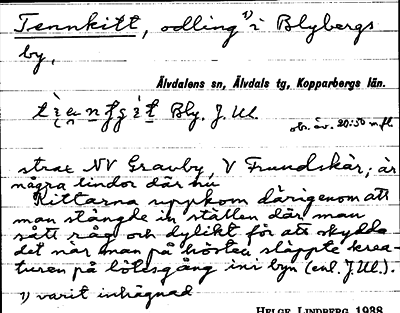 Tennkitt, odling 1) i Blybergs
by,
Älvdalens sn, Älvdals tg, Kopparbergs län.
Bly. J. Ul.
ob. av. 20:50 m fl.
strax NV Gravby, V Frundskär; är
några lindor där nu
Kittarna uppkom därigenom att
man stängde in ställen där man
sått råg och dylikt för att skydda
det när man på hösten släppte krea-
turen på lötesgång in i byn (enl. J. Ul.).
1) varit inhägnad
HELGE LINDBERG 1938